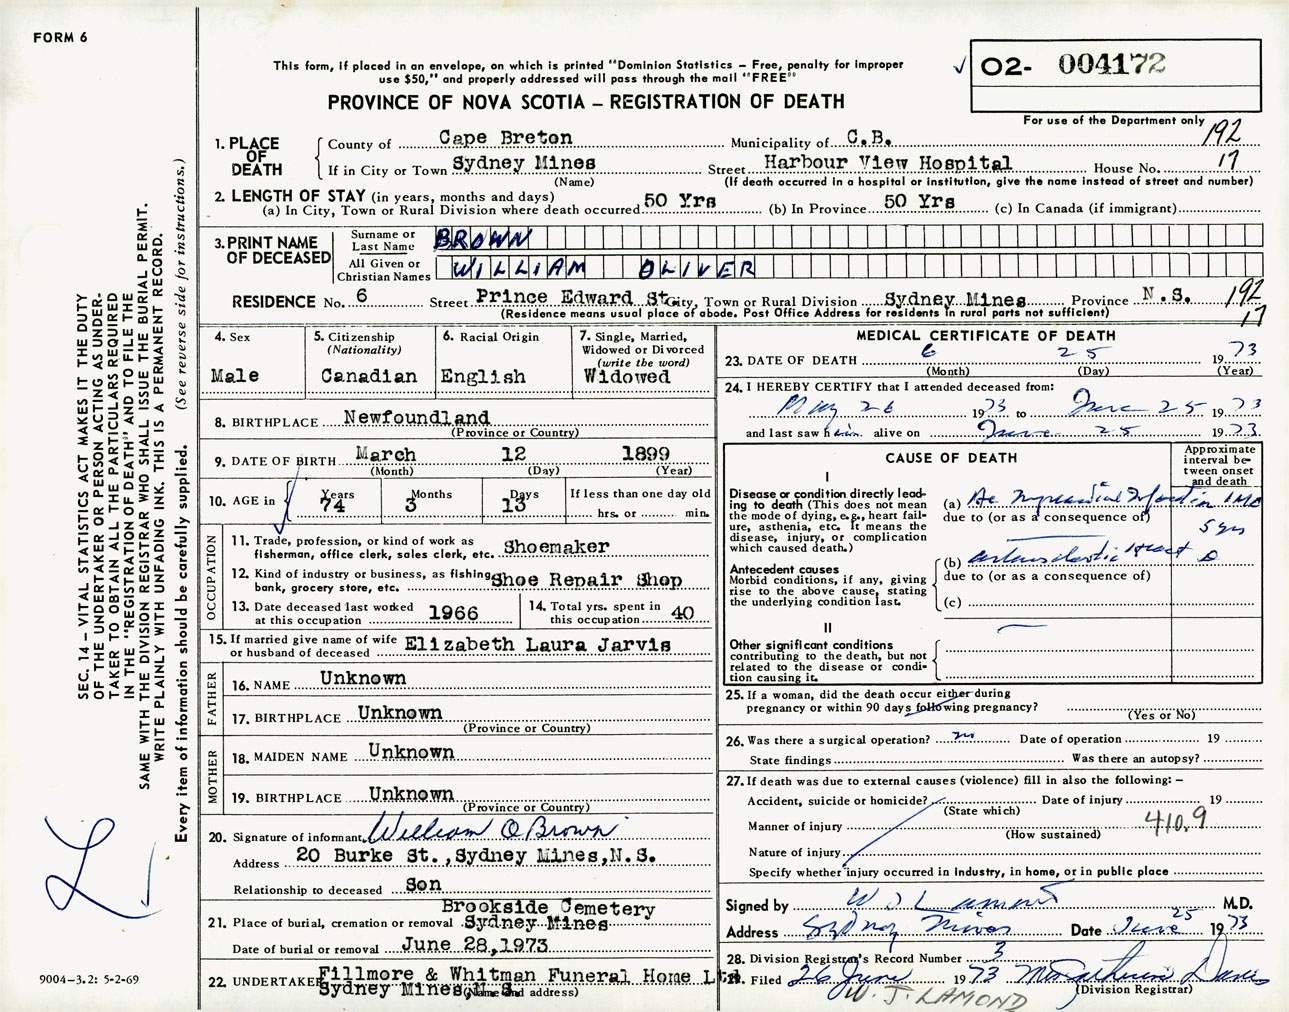 FORM 6
This form, if placed in an envelope, on which is printed "Dominion Statistics – Free, penalty for improper
use $50," and properly addressed will pass through the mail "FREE"
PROVINCE OF NOVA SCOTIA – REGISTRATION OF DEATH
O2- 004172
For use of the Department only
192
17
1. PLACE OF DEATH
County of Cape Breton Municipality of C.B.
If in City or Town Sydney Mines Street Harbour View Hospital House No.
(Name) (If death occurred in a hospital or institution, give the name instead of street and number)
2. LENGTH OF STAY (in years, months and days)
(a) In City, Town or Rural Division where death occurred 50 Yrs (b) In Province 50 Yrs (c) In Canada (if immigrant)
3. PRINT NAME OF DECEASED
Surname or Last Name BROWN
All Given or Christian Names WILLIAM OLIVER
RESIDENCE No. 6 Street Prince Edward St. City, Town or Rural Division Sydney Mines Province N.S. 192
17
(Residence means usual place of abode. Post Office Address for residents in rural parts not sufficient)
4. Sex
Male
5. Citizenship
(Nationality)
Canadian
6. Racial Origin
English
7. Single, Married,
Widowed or Divorced
(write the word)
Widowed
8. BIRTHPLACE Newfoundland
(Province or Country)
9. DATE OF BIRTH March 12 1899
(Month) (Day) (Year)
10. AGE in Years Months Days If less than one day old
74 3 13 hrs. or min.
OCCUPATION
11. Trade, profession, or kind of work as
fisherman, office clerk, sales clerk, etc. Shoemaker
12. Kind of industry or business, as fishing,
bank, grocery store, etc. Shoe Repair Shop
13. Date deceased last worked
at this occupation 1966
14. Total yrs. spent in
this occupation 40
15. If married give name of wife
or husband of deceased Elizabeth Laura Jarvis
FATHER
16. NAME Unknown
17. BIRTHPLACE Unknown
(Province or Country)
MOTHER
18. MAIDEN NAME Unknown
19. BIRTHPLACE Unknown
(Province or Country)
20. Signature of informant William O Brown
Address 20 Burke St., Sydney Mines, N.S.
Relationship to deceased Son
Brookside Cemetery
21. Place of burial, cremation or removal Sydney Mines
Date of burial or removal June 28, 1973
22. UNDERTAKER Fillmore & Whitman Funeral Home Ltd.
Sydney Mines, N.S.
(Name and address)
MEDICAL CERTIFICATE OF DEATH
23. DATE OF DEATH 6 25 1973
(Month) (Day) (Year)
24. I HEREBY CERTIFY that I attended deceased from:
May 26 1973 to June 25 1973
and last saw him alive on June 25 1973
CAUSE OF DEATH
Approximate
interval be-
tween onset
and death
I
Disease or condition directly lead-
ing to death (This does not mean
the mode of dying, e.g., heart fail-
ure, asthenia, etc. It means the
disease, injury, or complication
which caused death.)
(a)
due to (or as a consequence of)
5 yrs
(b) Heart
due to (or as a consequence of)
Antecedent causes
Morbid conditions, if any, giving
rise to the above cause, stating
the underlying condition last.
(c)
II
Other significant conditions
contributing to the death, but not
related to the disease or condi-
tion causing it.
25. If a woman, did the death occur either during
pregnancy or within 90 days following pregnancy?
(Yes or No)
26. Was there a surgical operation? no Date of operation 19
State findings Was there an autopsy?
27. If death was due to external causes (violence) fill in also the following: –
Accident, suicide or homicide? Date of injury 19
(State which)
Manner of injury 410.9
(How sustained)
Nature of injury
Specify whether injury occurred in industry, in home, or in public place
Signed by W J Lamond M.D.
Address Sydney Mines Date June 25 1973
28. Division Registrar's Record Number 3
29. Filed 26 June 1973 Davis
(Division Registrar)
W. J. LAMOND
SEC. 14 – VITAL STATISTICS ACT MAKES IT THE DUTY
OF THE UNDERTAKER OR PERSON ACTING AS UNDER-
TAKER TO OBTAIN ALL THE PARTICULARS REQUIRED
IN THE "REGISTRATION OF DEATH" AND TO FILE THE
SAME WITH THE DIVISION REGISTRAR WHO SHALL ISSUE THE BURIAL PERMIT.
WRITE PLAINLY WITH UNFADING INK. THIS IS A PERMANENT RECORD.
Every item of information should be carefully supplied. (See reverse side for instructions.)
9004–3.2: 5-2-69